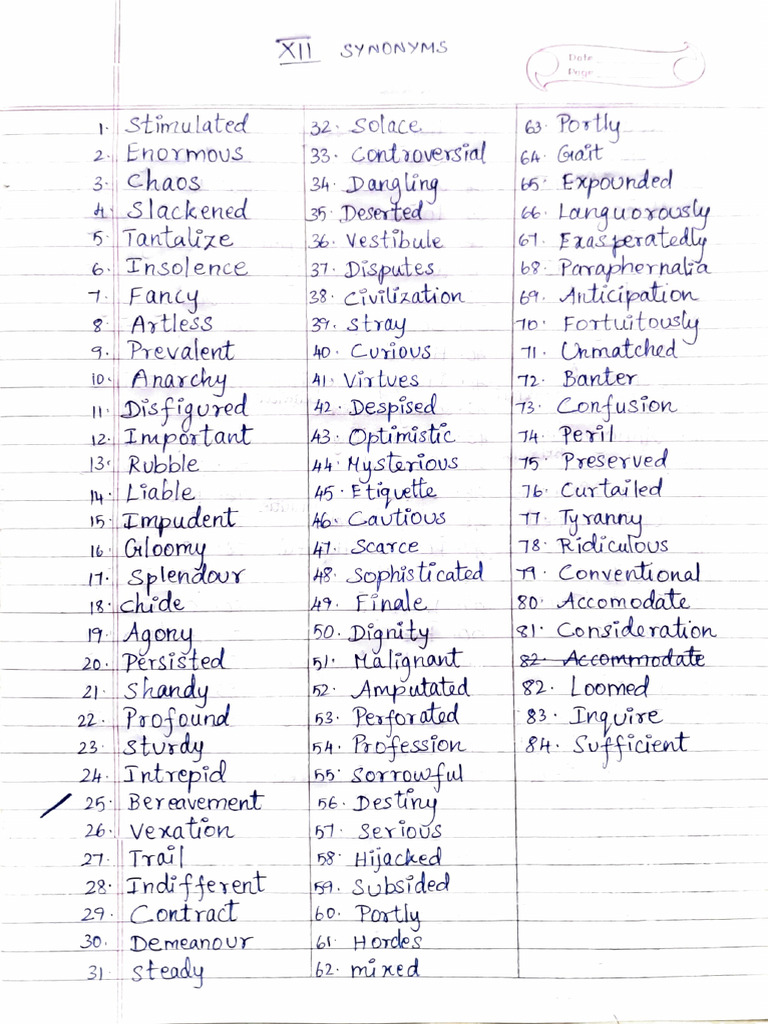 XII SYNONYMS
Date
Page
1. Stimulated
2. Enormous
3. Chaos
4. Slackened
5. Tantalize
6. Insolence
7. Fancy
8. Artless
9. Prevalent
10. Anarchy
11. Disfigured
12. Important
13. Rubble
14. Liable
15. Impudent
16. Gloomy
17. Splendour
18. Chide
19. Agony
20. Persisted
21. Shandy
22. Profound
23. Sturdy
24. Intrepid
25. Bereavement
26. Vexation
27. Trail
28. Indifferent
29. Contract
30. Demeanour
31. Steady
32. Solace
33. Controversial
34. Dangling
35. Deserted
36. Vestibule
37. Disputes
38. Civilization
39. Stray
40. Curious
41. Virtues
42. Despised
43. Optimistic
44. Mysterious
45. Etiquette
46. Cautious
47. Scarce
48. Sophisticated
49. Finale
50. Dignity
51. Malignant
52. Amputated
53. Perforated
54. Profession
55. Sorrowful
56. Destiny
57. Serious
58. Hijacked
59. Subsided
60. Portly
61. Hordes
62. mixed
63. Portly
64. Gait
65. Expounded
66. Languorously
67. Exasperatedly
68. Paraphernalia
69. Anticipation
70. Fortuitously
71. Unmatched
72. Banter
73. Confusion
74. Peril
75. Preserved
76. Curtailed
77. Tyranny
78. Ridiculous
79. Conventional
80. Accomodate
81. Consideration
82. Accommodate
82. Loomed
83. Inquire
84. Sufficient